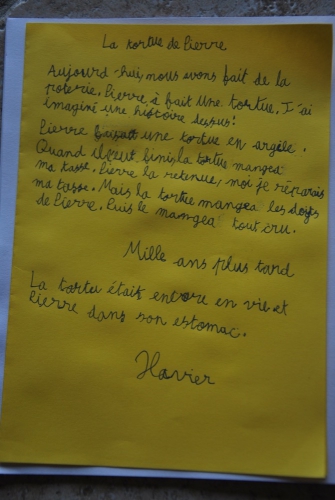 La tortue de Pierre
Aujourd-hui, nous avons fait de la
poterie. Pierre, à fait une tortue. J'ai
imaginé une histoire dessus!
Pierre faisait une tortue en argile.
Quand il eut fini, la tortue mangea
ma tasse. Pierre la retenue, moi je réparais
ma tasse. Mais la tortue mangea les doigts
de Pierre. Puis le mangea tout cru.
Mille ans plus tard
La tortu était encore en vie et
Pierre dans son estomac.
Havier